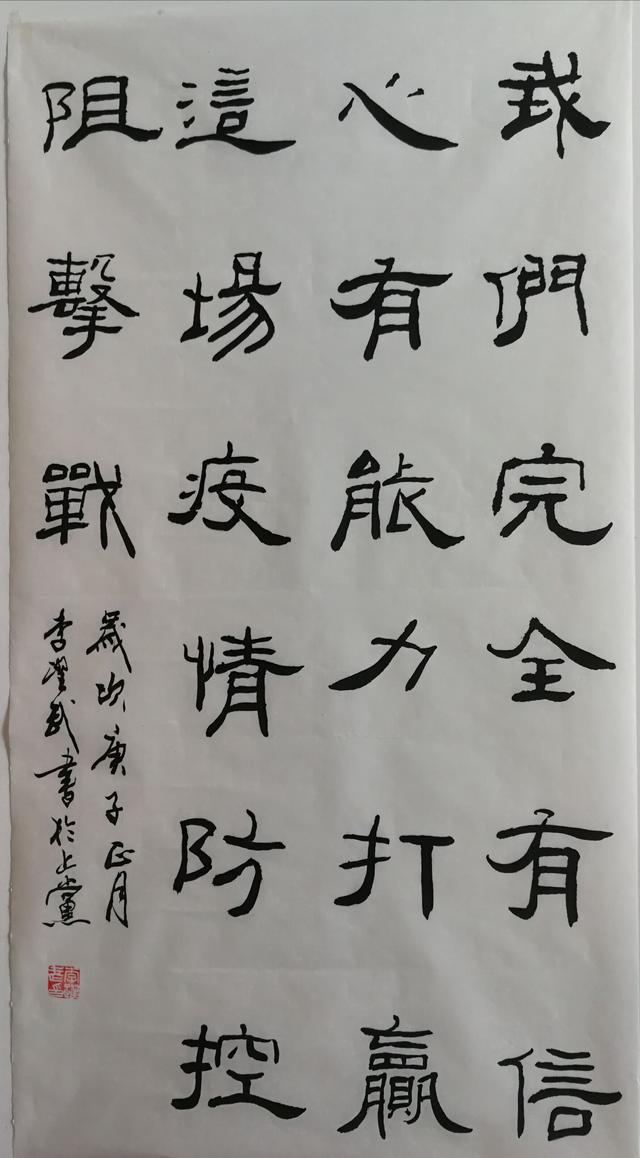 我們完全有信
心有能力打贏
這場疫情防控
阻擊戰
歲次庚子正月
李豐武書於上黨